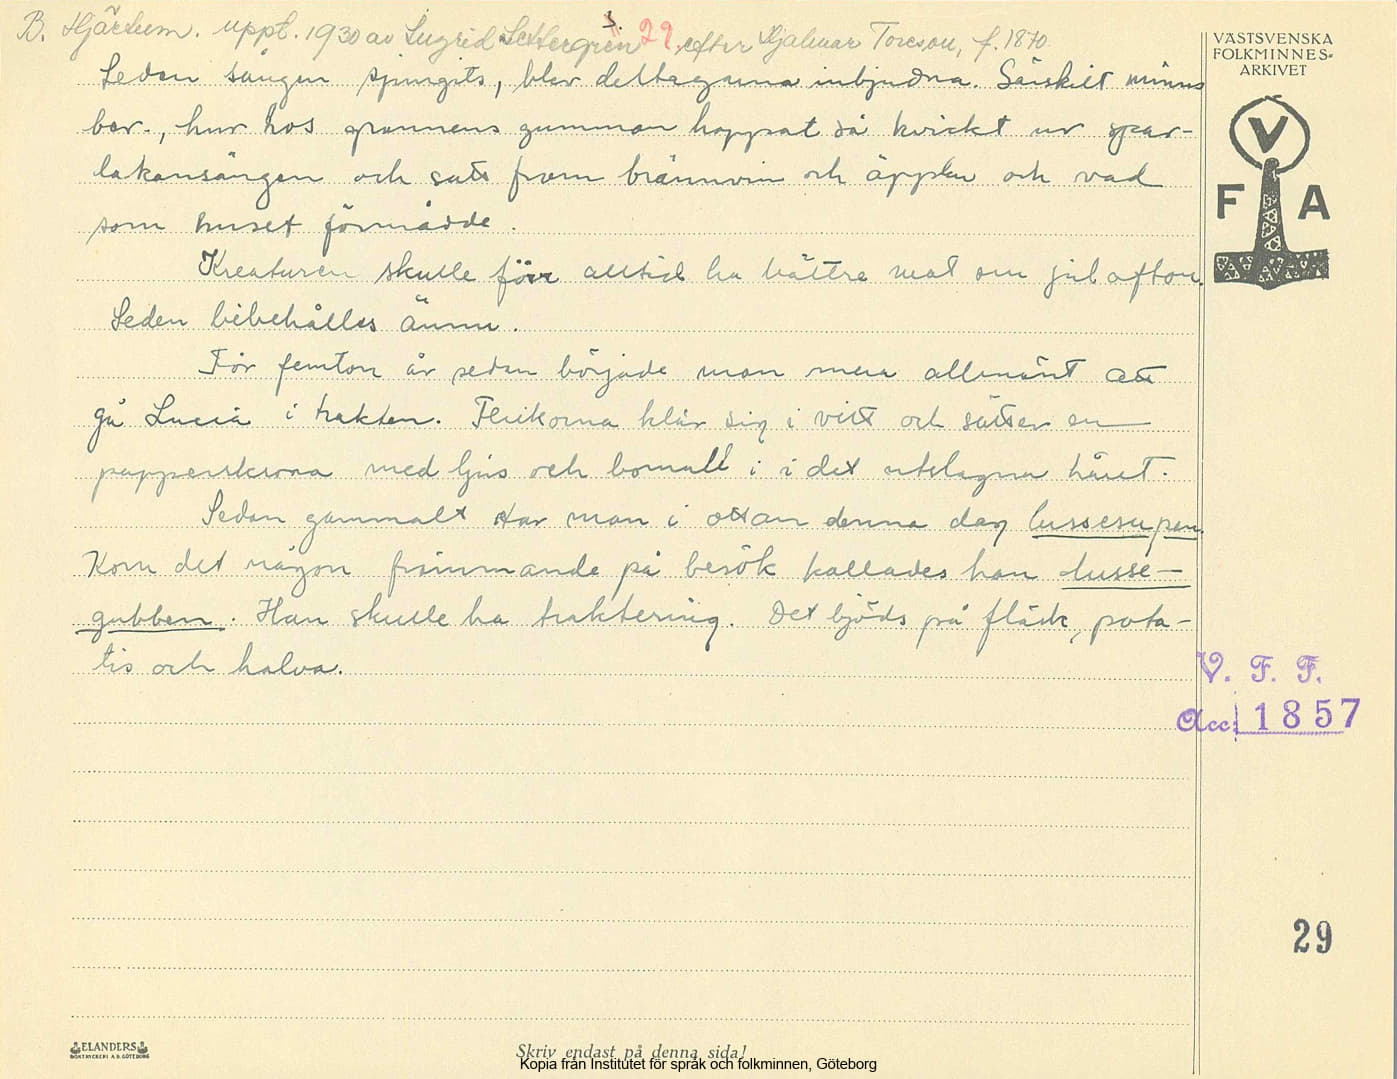 B. Hjärtum. Uppt. 1930 av Ingrid Settergren 29. efter Hjalmar Toreson, f. 1870
3.
VÄSTSVENSKA
FOLKMINNES-
ARKIVET
Sedan sången sjungits, blev deltagarna inbjudna. Särskilt minns
ber., hur hos grannens gumman hoppat så kvickt ur spar-
lakansängen och satt fram brännvin och äpplen och vad
som huset förmådde.
V
F A
Kreaturen skulle förr alltid ha bättre mat om julafton.
Seden bibehålles ännu.
För femton år sedan började man mera allmänt att
gå Lucia i trakten. Flickorna klär sig i vitt och sätter en
papperskrona med ljus och bomull i i det utslagna håret.
Sedan gammalt tar man i ottan denna dag lussesupen.
Kom det någon främmande på besök kallades han lusse-
gubben. Han skulle ha traktering. Det bjöds på fläsk, pota-
tis och halva.
V. F. F.
Acc: 1857
29
ELANDERS
BOKTRYCKERI A.B. GÖTEBORG
Skriv endast på denna sida!
Kopia från Institutet för språk och folkminnen, Göteborg